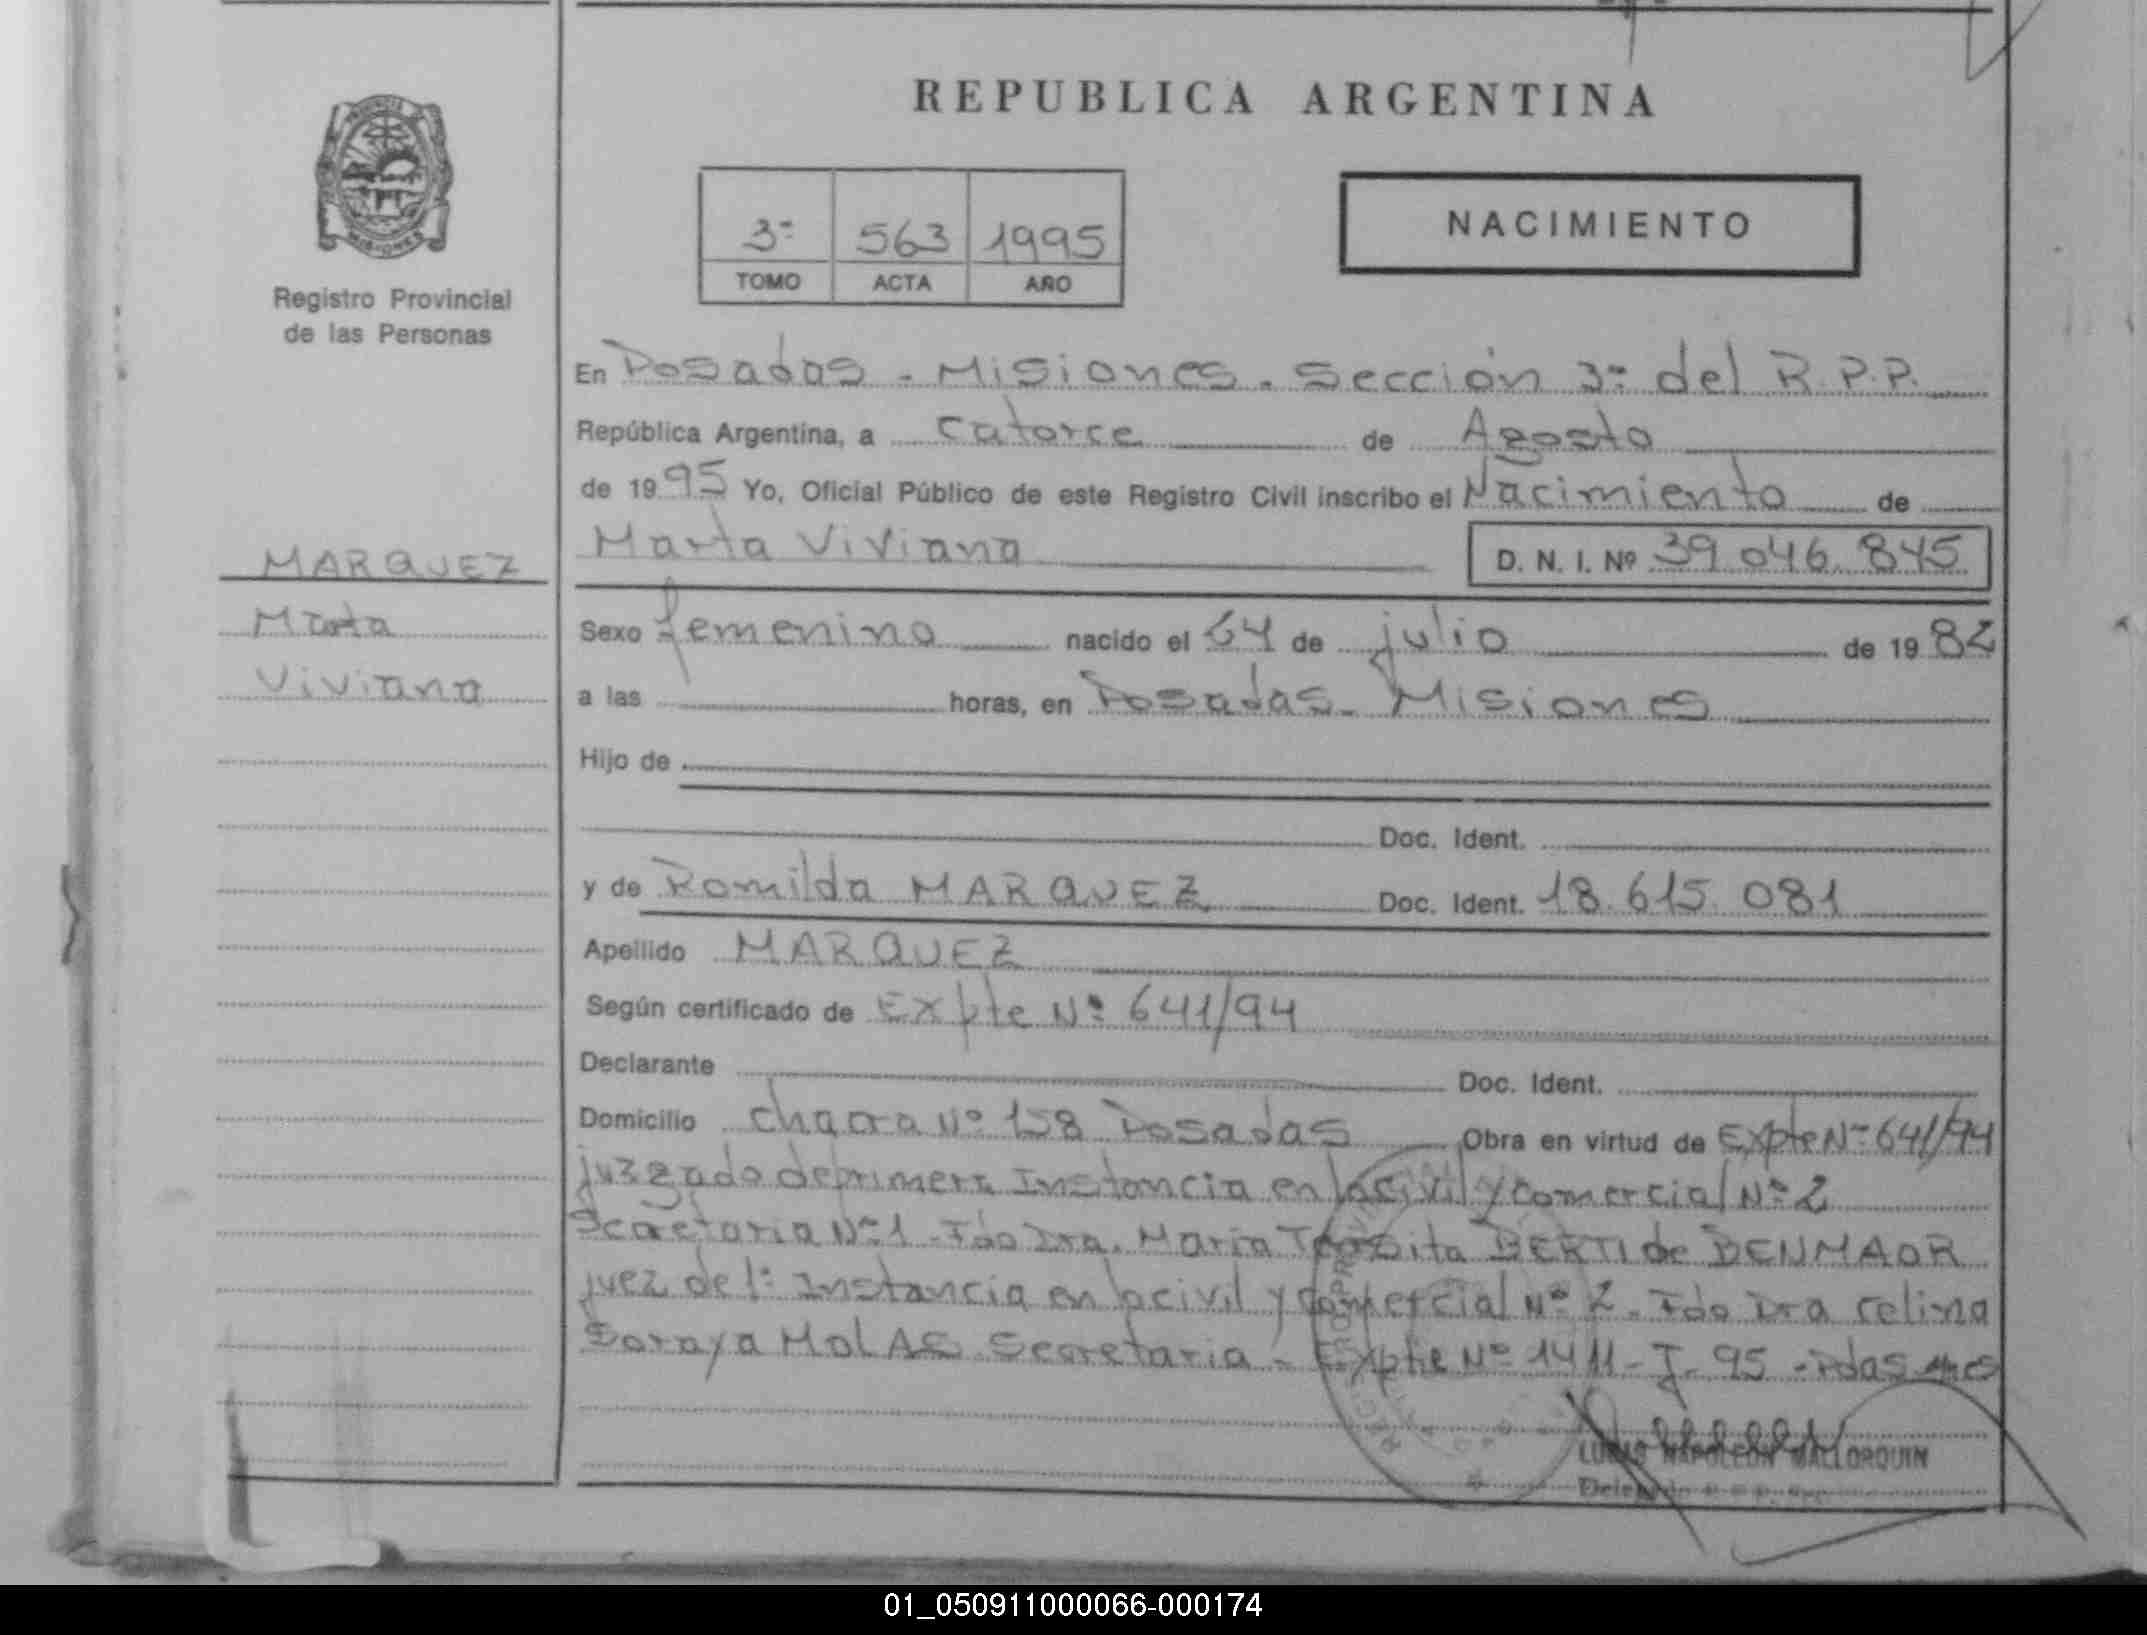 REPUBLICA ARGENTINA
PROVINCIA
MISIONES
Registro Provincial
de las Personas
3ª 563 1995
TOMO ACTA AÑO
NACIMIENTO
En Posadas - Misiones - Sección 3ª del R.P.P.
República Argentina, a catorce de Agosto
de 1995 Yo, Oficial Público de este Registro Civil inscribo el Nacimiento de
Marta Viviana D. N. I. Nº 39.046.845
MARQUEZ
Marta
Viviana
Sexo femenino nacido el 04 de julio de 1982
a las horas, en Posadas - Misiones
Hijo de
Doc. Ident.
y de Romilda MARQUEZ Doc. Ident. 18.615.081
Apellido MARQUEZ
Según certificado de Expte Nº 641/94
Declarante Doc. Ident.
Domicilio chacra Nº 158 Posadas Obra en virtud de Expte Nº 641/94
juzgado de primera Instancia en lo civil y comercial Nº 2
Secretaria Nº 1 - Fdo Dra. Maria Teresita BERTI de BENMAOR
juez de 1ª Instancia en lo civil y comercial Nº 2 - Fdo Dra Celina
Soraya MOLAS Secretaria - Expte Nº 1411 - J - 95 - Pdas. Mnes
LUCAS NAPOLEON MALLORQUIN
01_050911000066-000174